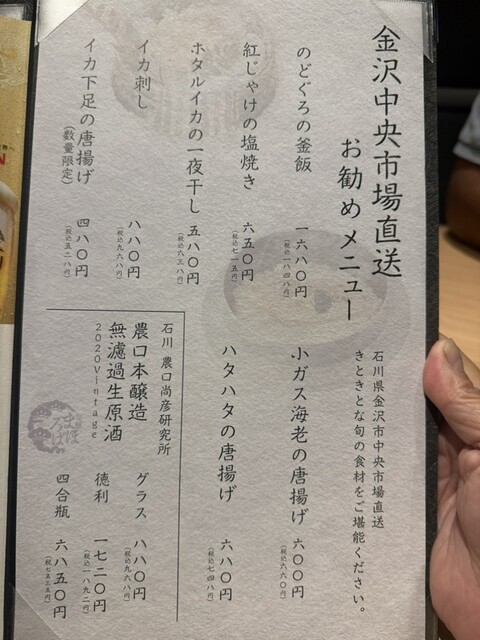 金沢中央市場直送
お勧めメニュー
石川県金沢市中央市場直送
きときとな旬の食材をご堪能ください。
のどぐろの釜飯
一六八〇円
(税込一八四八円)
紅じゃけの塩焼き
六五〇円
(税込七一五円)
ホタルイカの一夜干し
五八〇円
(税込六三八円)
イカ刺し
八八〇円
(税込九六八円)
イカ下足の唐揚げ
(数量限定)
四八〇円
(税込五二八円)
小ガス海老の唐揚げ
六〇〇円
(税込六六〇円)
ハタハタの唐揚げ
六八〇円
(税込七四八円)
石川 農口尚彦研究所
農口本醸造
無濾過生原酒
2020Vintage
グラス 八八〇円
(税込九六八円)
徳利 一七二〇円
(税込一八九二円)
四合瓶 六八五〇円
(税込七五三五円)